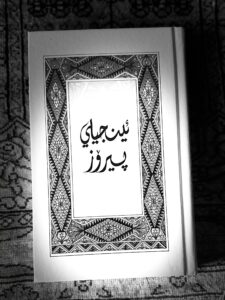 ئینجیلی
پیرۆز